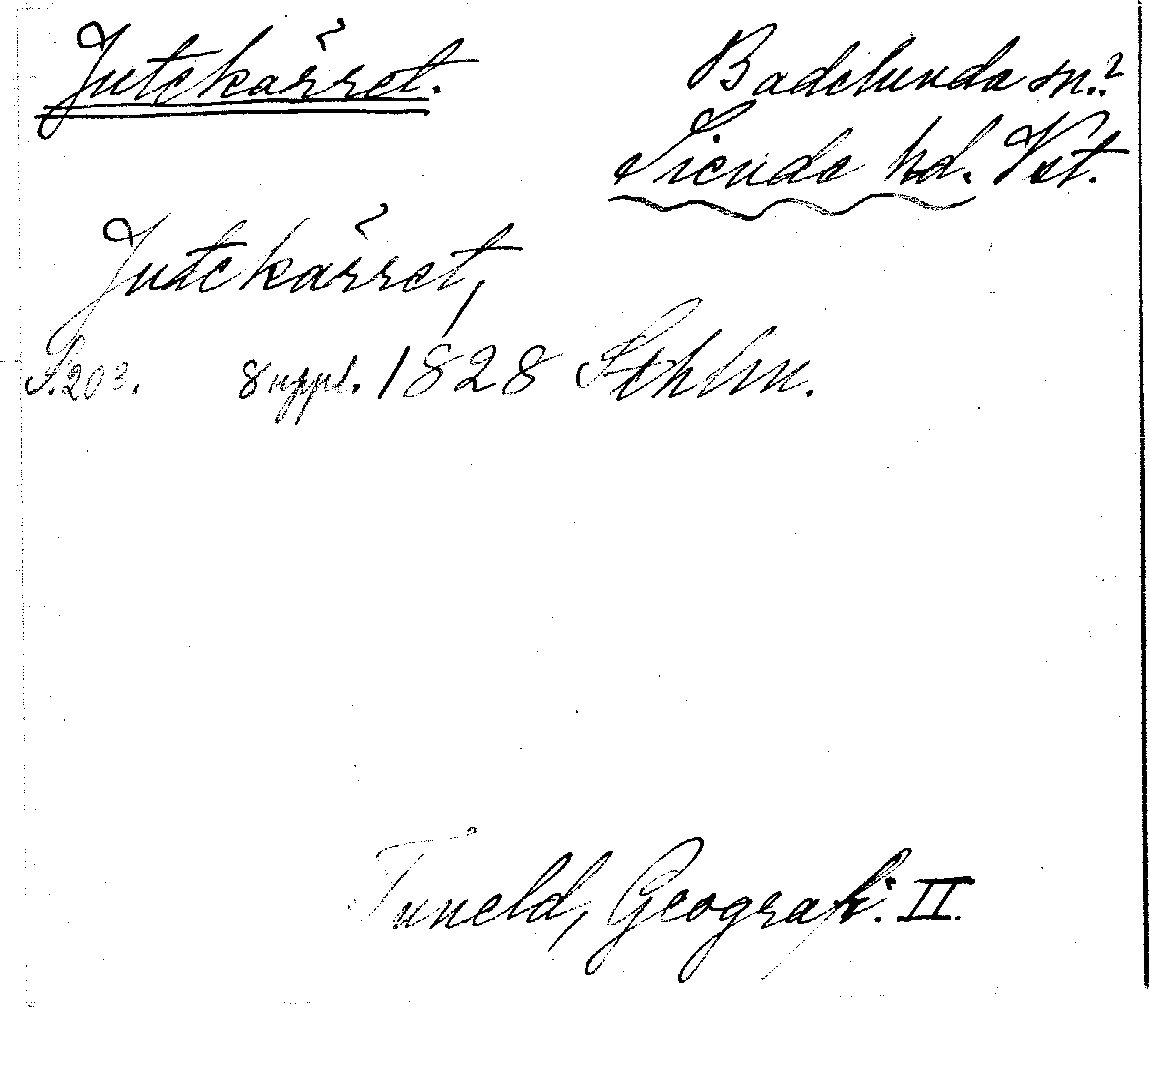 Jutekärret.
Badelunda sn.?
Siende hd. Vst.
Jutekärret,
S. 203. Suppl. 1828 Sthlm.
Tuneld, Geografi. II.